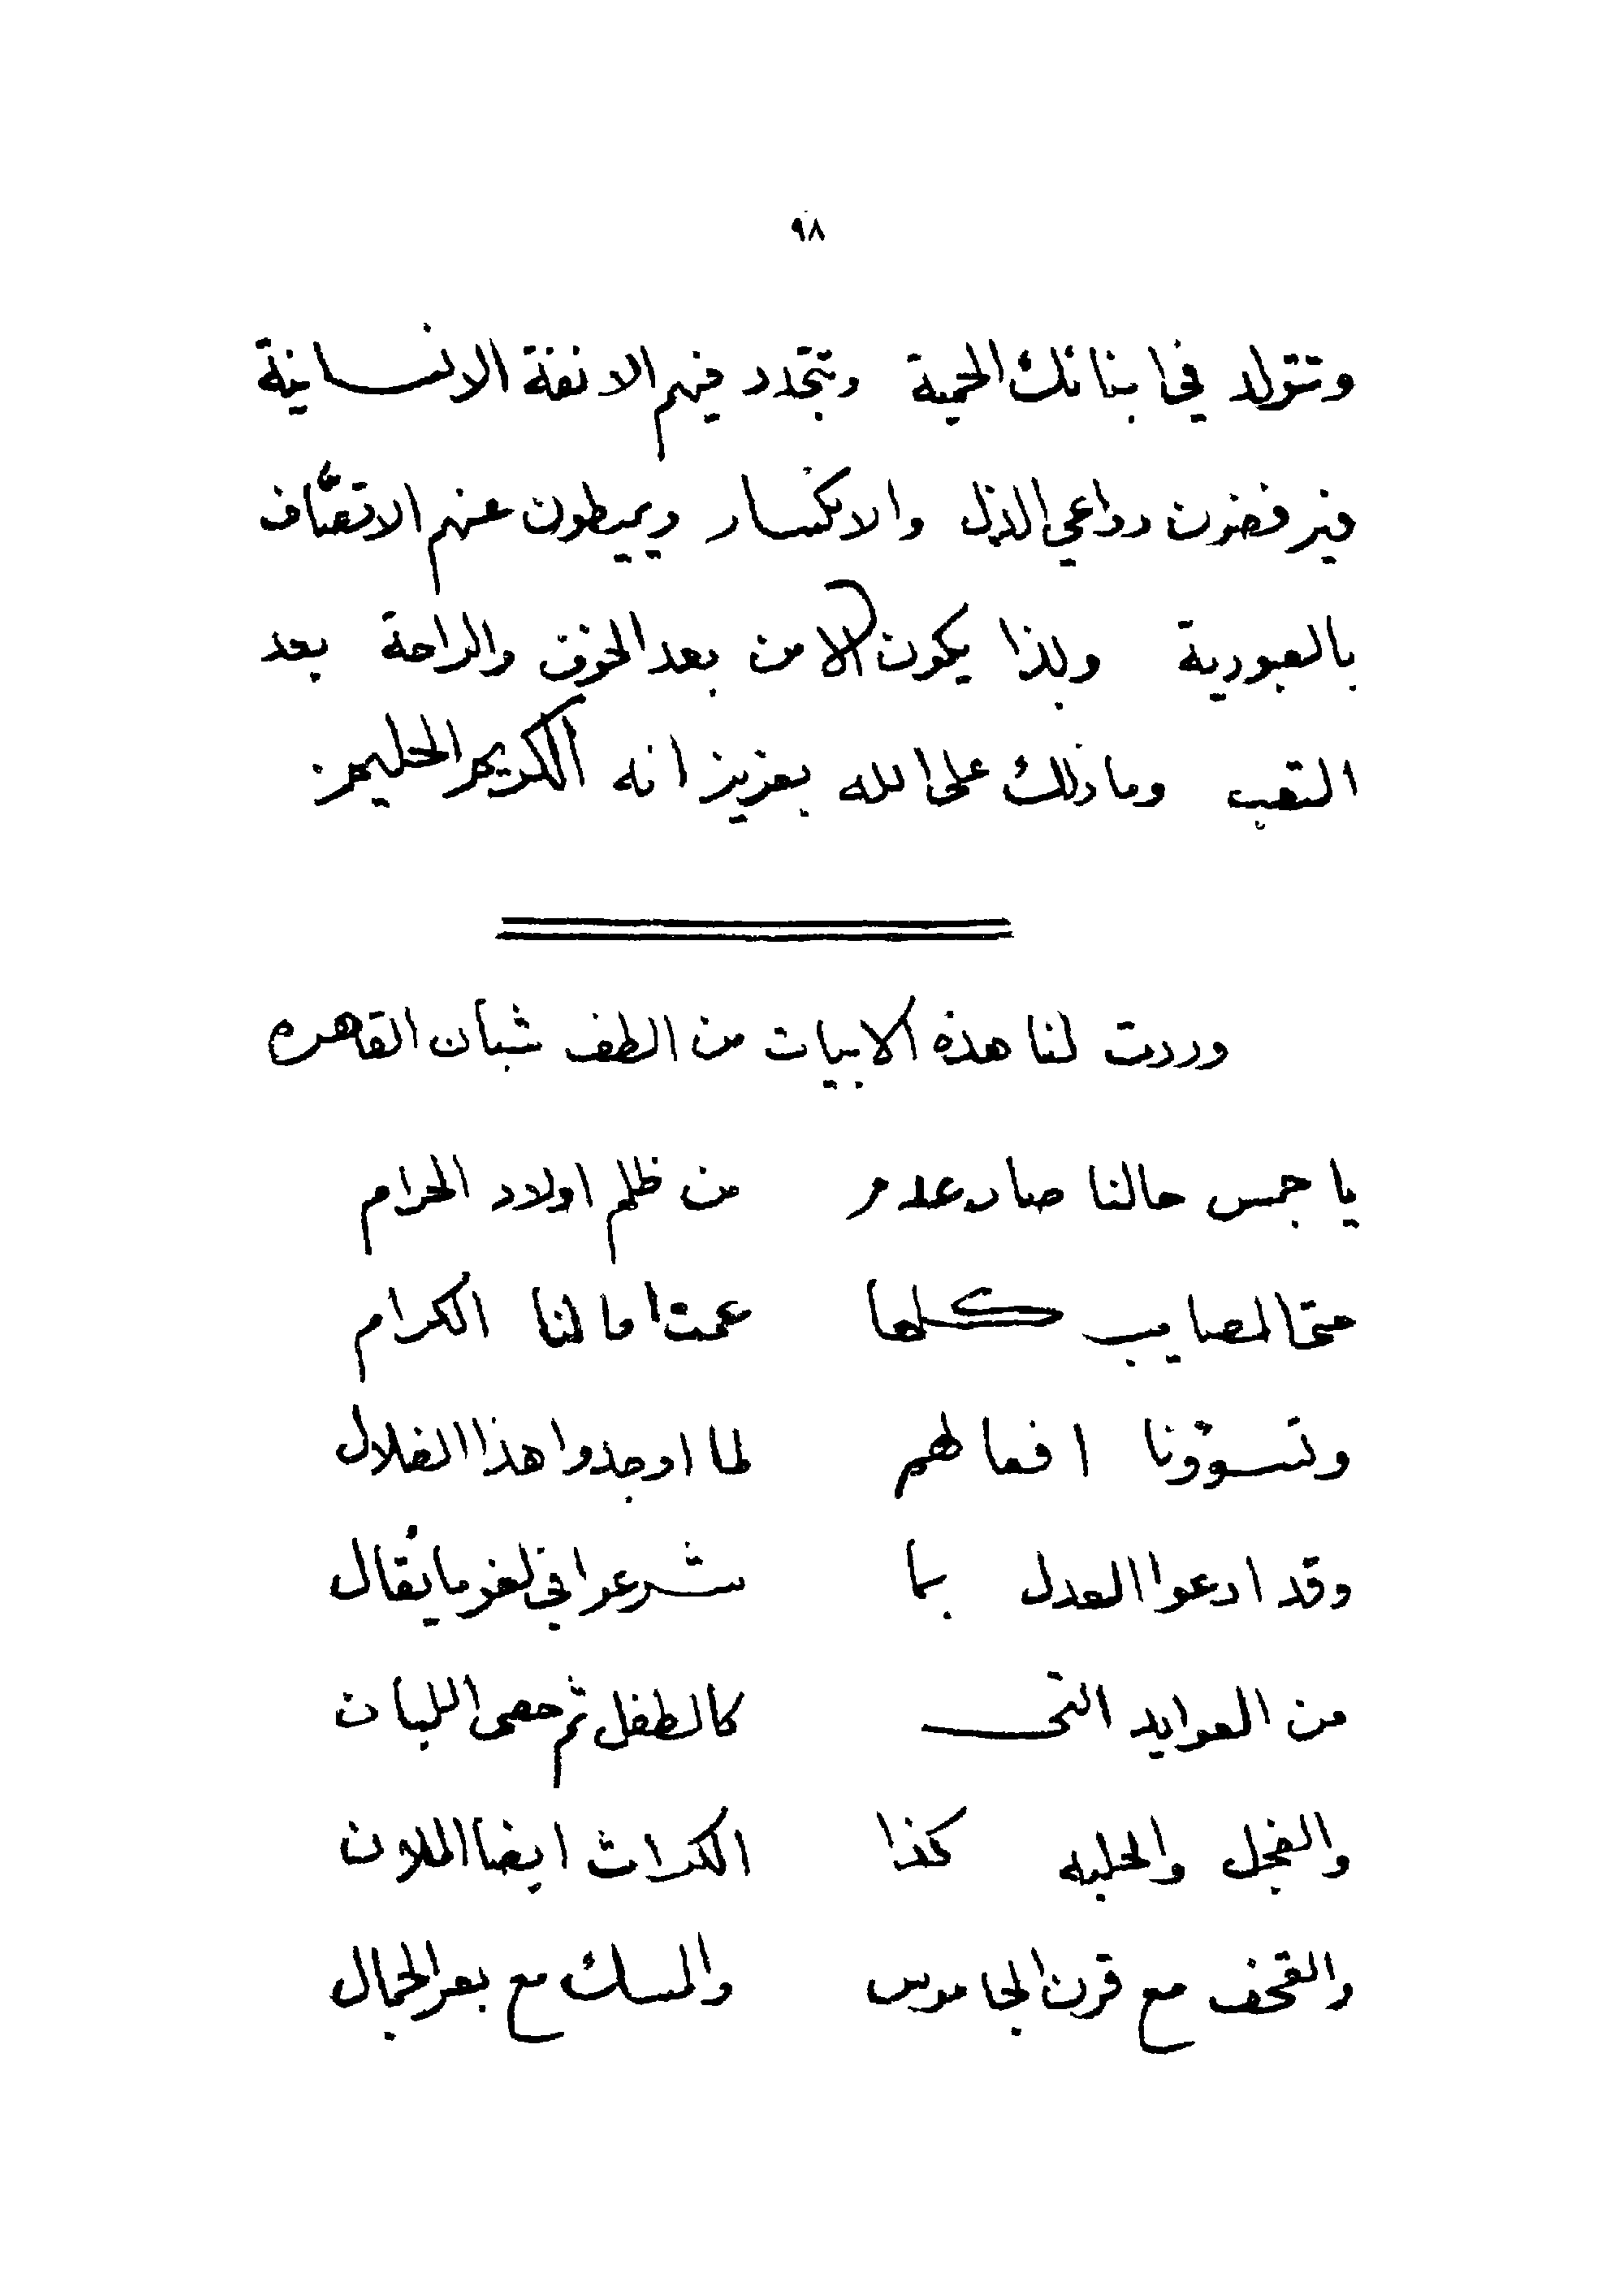 ٩٨
وتتولد في ابنائك الحمية وتتجدد فيهم الانفة الانسانية
فيرفضون دواعي الذل والانكسار ويميطون عنهم الاتصاف
بالعبودية وبذا يكون الامن بعد الخوف والراحة بعد
التعب وما ذلك على الله بعزيز انه الكريم الحليم
وردت لنا هذه الابيات من الطف شبان القاهره
يا جمس حالنا صار عدم من ظلم اولاد الحرام
حتى المصايب كلها عمت امالنا الكرام
وتسوؤنا افعالهم لما اوجدوا هذا الضلال
وقد ادعوا العدل بما شرعوا في لغو ما يقال
من العوايد التى كالطفل ثم حصى اللبان
والفجل والحلبه كذا الكراث ايضا الملان
والقحف مع قرن الجاموس والمسك مع بعر الجمال